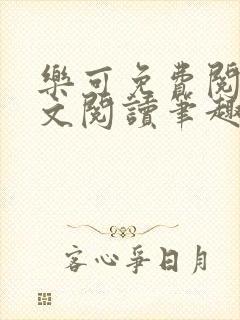 樂可免費閱
文閱讀筆趣
客心爭日月